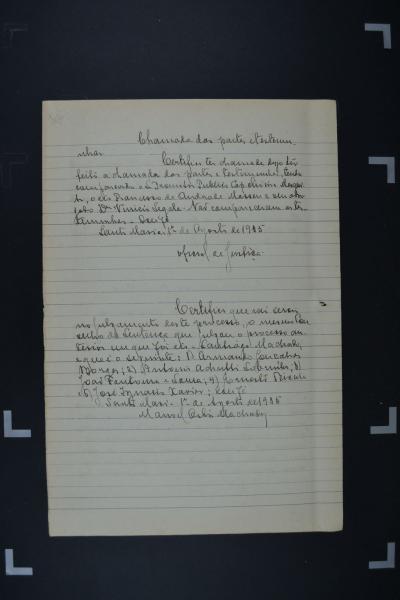 Chamada das partes e testemu-
nhas
Certifico ter chamado hoje ter
feito a chamada das partes e testemunhas, tendo
comparecido o Promotor Publico Cap.
o réo Francisco de Andrade e seu advo-
gado Dr. Vinicio. Não compareceram as tes-
temunhas. Dou fé
Santa Maria, 1º de Agosto de 1935
Oficial de Justiça
Certifico que vai servir
no julgamento deste processo, o mesmo Con
selho de Sentença que julgou o processo an-
terior em que foi réo Santiago Machado,
e que é o seguinte: 1) Armando Goncalves
Borges; 2) Antonio; 3)
João e Souza; 4) Ernesto
5) José Ignacio Xavier; Dou fé
Santa Maria, 1º de Agosto de 1935
Manoel Machado